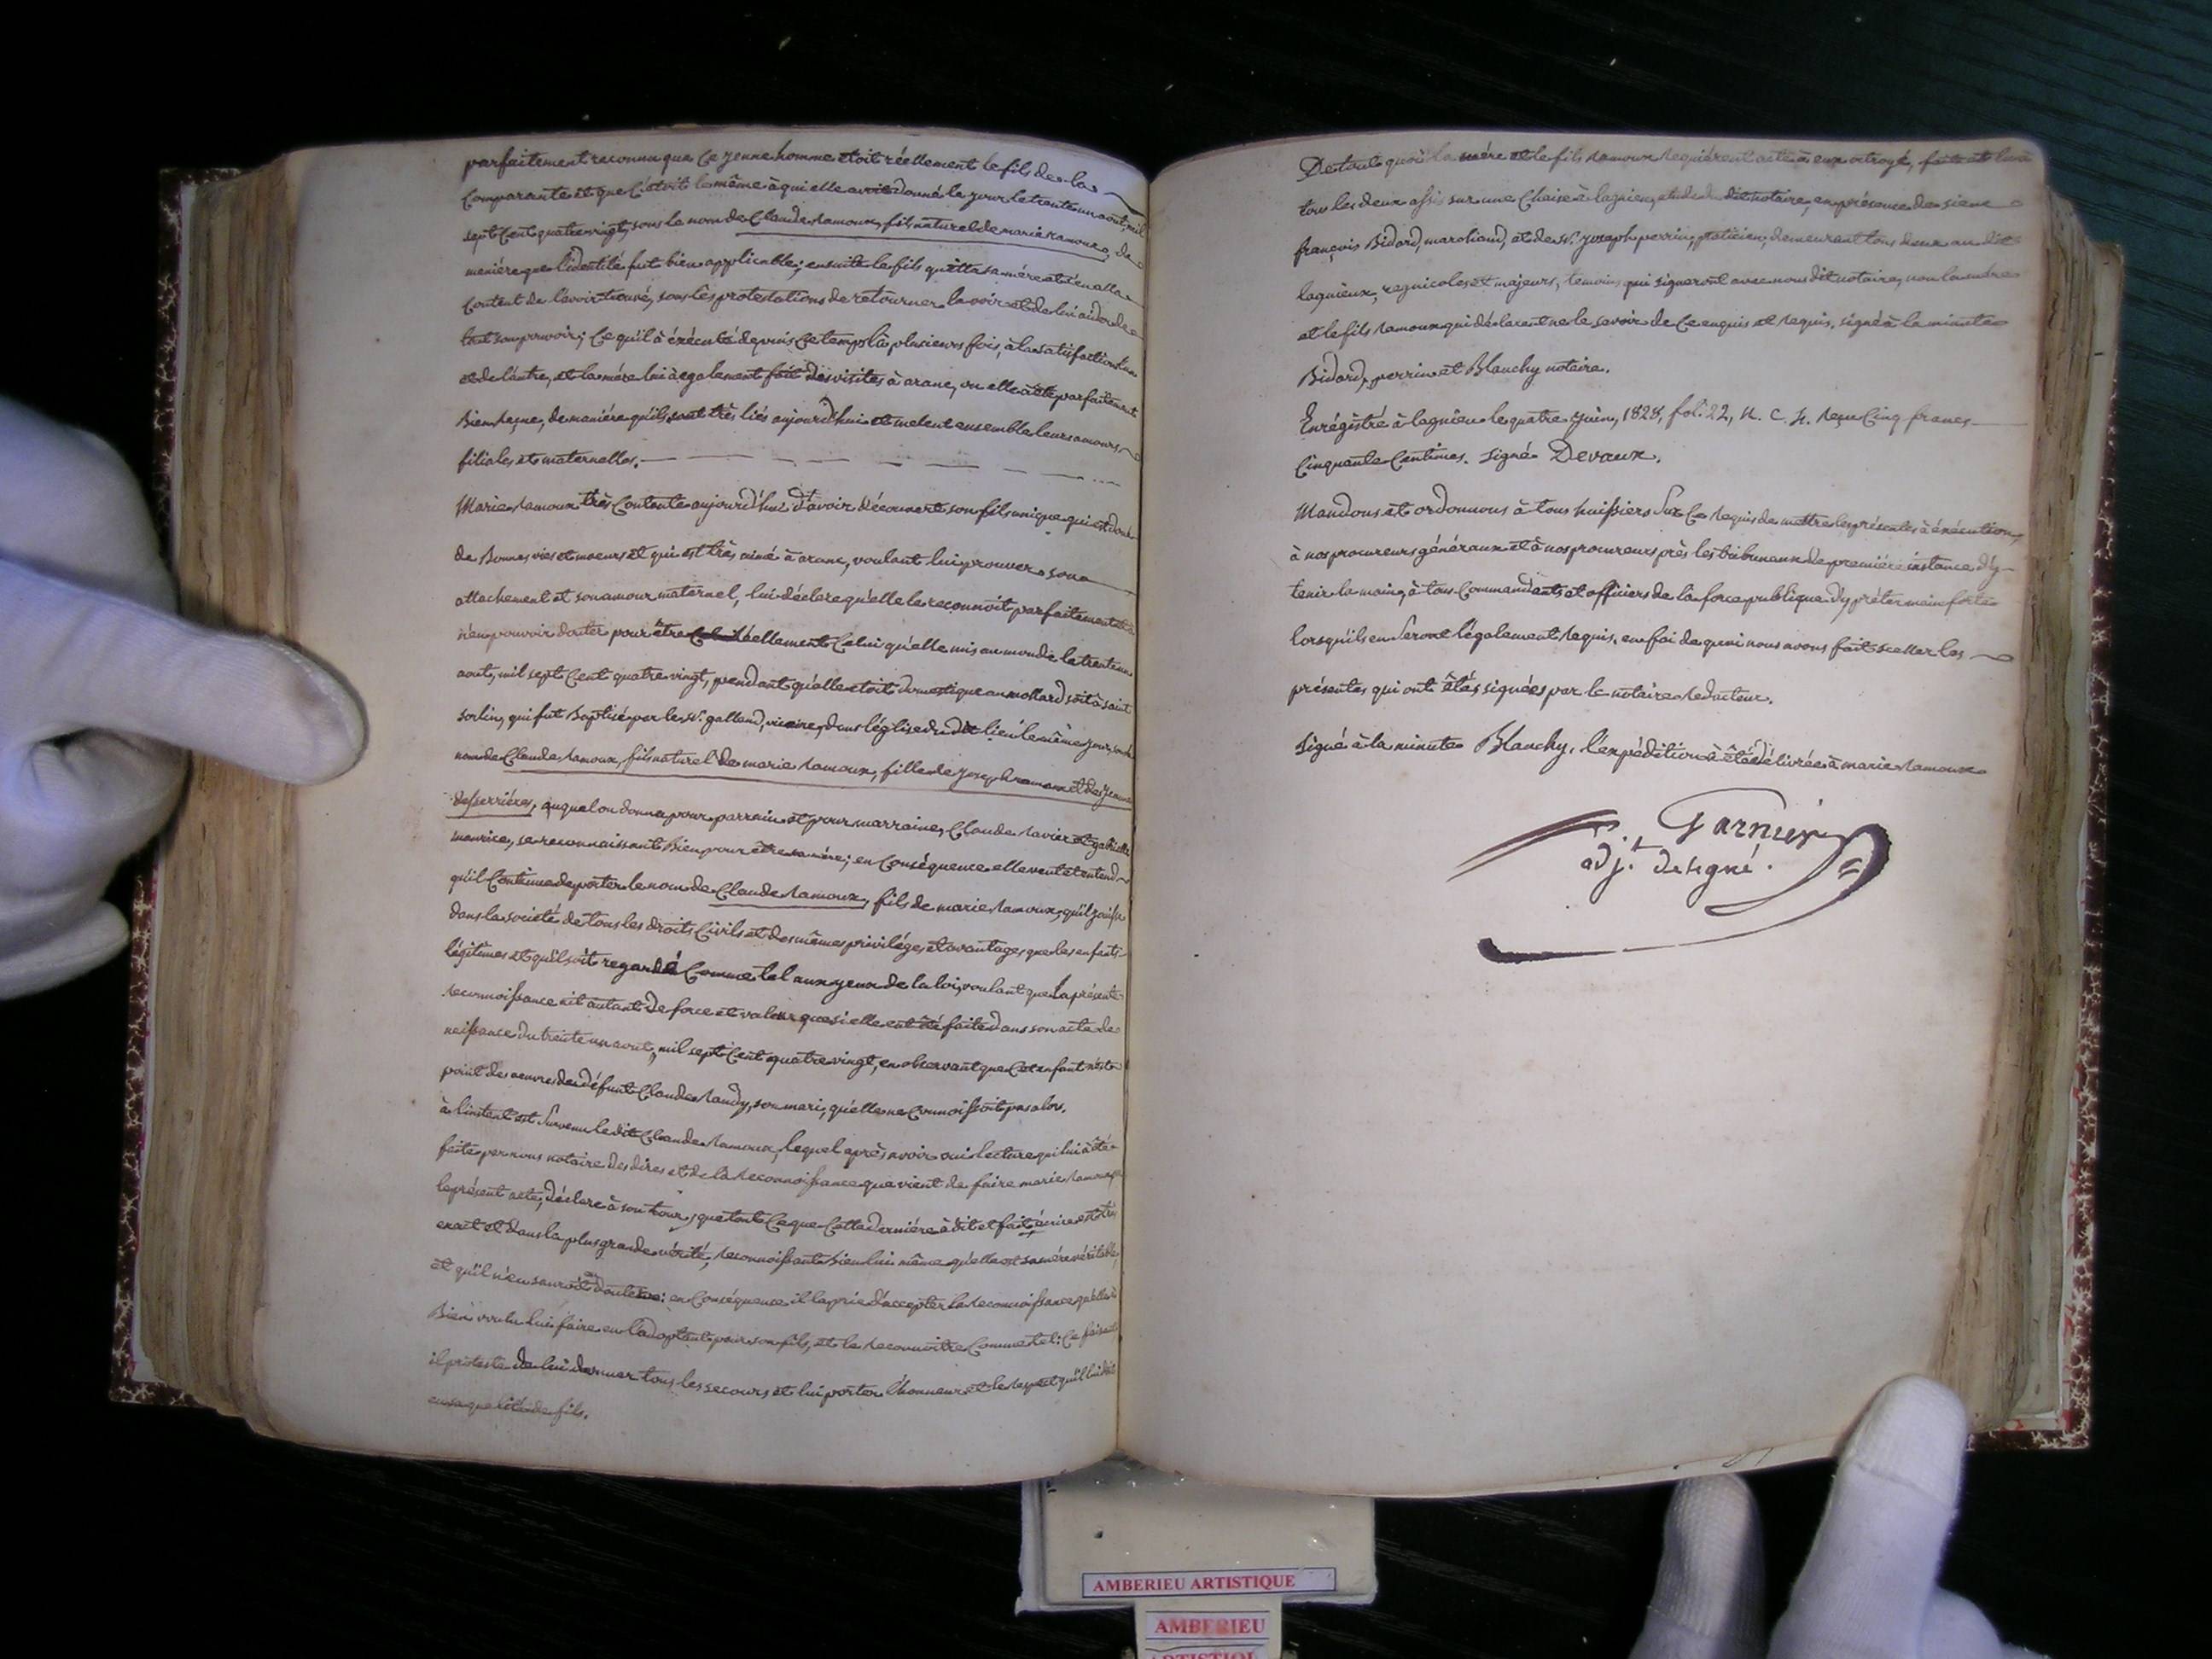 parfaitement reconnu que ce jeune homme etoit réellement le fils de la
Comparante et que c'étoit le même à qui elle avoit donné le jour le trente un aout, mil
sept Cent quatre vingt, sous le nom de Claude ramoux, fils naturel de marie ramoux, de
maniére que l'identité fut bien applicable; ensuite le fils quitta sa mére et s'en alla
Content de l'avoir trouvé, sous les protestations de retourner la voir et de lui aider de
tout son pouvoir; Ce qu'il à éxécuté depuis Ce temps là plusieurs fois, à la satisfaction
et de l'autre, et la mére lui à egalement fait des visites à arane, ou elle à été parfaitement
Bien reçue, de maniére qu'ils sont très liés aujourd'hui et melent ensemble leurs amours
filiales et maternelles.
Marie ramoux très Contente aujourd'hui d'avoir découvert son fils unique qui est doué
de Bonnes vies et moeurs et qui est très aimé à arane, voulant lui prouver son
attachement et son amour maternel, lui déclare qu'elle le reconnoit parfaitement
n'en pouvoir douter pour être réellement Celui qu'elle mis au monde le trente un
aout, mil sept Cent quatre vingt, pendant qu'elle etoit domestique au mollard soit à saint
sorlin, qui fut Baptisé par le Sr. galland, vicaire, dans l'église du dit lieu le même jour, sous le
nom de Claude ramoux, fils naturel de marie ramoux, fille de joseph ramoux et de jeanne
desserriéres, auquel on donna pour parrain et pour marraine, Claude ravier et gabrielle
maurice, se reconnaissant Bien pour être sa mére; en Conséquence elle veut et entend
qu'il Continue de porter le nom de Claude ramoux, fils de marie ramoux, qu'il jouisse
dans la societé de tous les droits Civils et des mêmes priviléges et avantages que les enfants
légitimes et qu'il soit regardé Comme tel aux yeux de la loi, voulant que la présente
reconnoissance ait autant de force et valeur que si elle eut été faite dans son acte de
naissance du trente un aout, mil sept Cent quatre vingt, en observant que Cet enfant n'est
point des oeuvres de défunt Claude randy, son mari, qu'elle ne Connoissoit pas alors.
à l'instant est survenu le dit Claude ramoux, lequel après avoir oui lecture qui lui à été
faite par nous notaire des dires et de la reconnoissance que vient de faire marie ramoux
le présent acte, déclare à son tour, que tout Ce que Cette derniére à dit et fait écrire est très
exact et dans la plus grande vérité, reconnoissant Bien lui même qu'elle est sa mére véritable,
et qu'il n'en sauroit douter: en Conséquence il la prie d'accepter la reconnoissance qu'elle à
Bien voulu lui faire en l'adoptant pour son fils, et le reconnoitre Comme tel: Ce faisant
il proteste de lui donner tous les secours et lui porter l'honneur et le respect qu'il lui doit
en sa qualité de fils.
De tout quoi la mére et le fils ramoux requiérent acte à eux octroyé, fait et lu à
tous les deux assis sur une Chaise à lagnieu, etude du dit notaire, en présence de sieur
françois Bidard, marchand, et de Sr. joseph perrin, praticien, demeurant tous deux au dit
lagnieux, regnicoles et majeurs, temoins qui signeront avec nous dit notaire, non la mére
et le fils ramoux qui déclarent ne le savoir de Ce enquis et requis. signé à la minute
Bidard, perrin et Blanchy notaire.
Enrégistré à lagnieu le quatre juin, 1828, fol. 22, R. C. 4. reçu Cinq francs
Cinquante Centimes. signé Devaux.
Mandons et ordonnons à tous huissiers sur Ce requis de mettre les présentes à éxécution,
à nos procureurs généraux et à nos procureurs près les tribunaux de premiére instance d'y
tenir la main, à tous Commandants et officiers de la force publique d'y préter main forte
lorsqu'ils en seront légalement requis. en foi de quoi nous avons fait sceller les
présentes qui ont étés signées par le notaire redacteur.
Signé à la minute Blanchy. l'expédition à été délivrée à marie ramoux
Garnier
adjt. designé.
AMBERIEU ARTISTIQUE
AMBERIEU
ARTISTIQUE